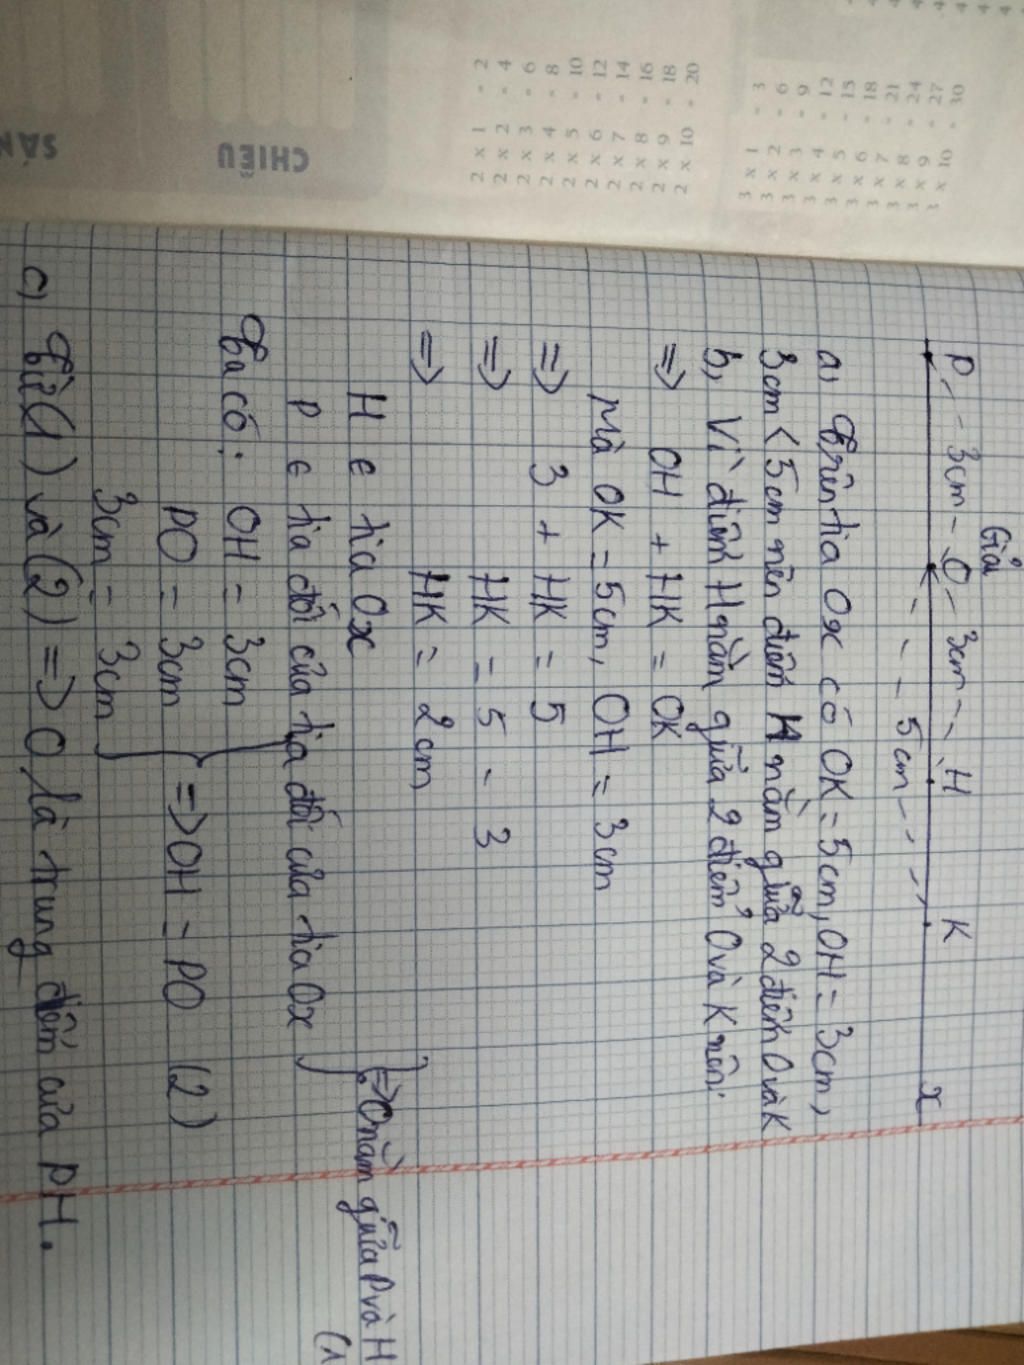 Giải
P - 3cm - O - 3cm - H K x
- - - 5cm - - -
a, Trên tia Ox có OK = 5cm, OH = 3cm,
3cm < 5cm nên điểm H nằm giữa 2 điểm O và K
b, Vì điểm H nằm giữa 2 điểm O và K nên:
=> OH + HK = OK
Mà OK = 5cm, OH = 3cm
=> 3 + HK = 5
=> HK = 5 - 3
=> HK = 2cm
H e tia Ox
=> O nằm giữa P và H (1
P e tia đối của tia đối của tia Ox
Ta có: OH = 3cm
PO = 3cm => OH = PO (2)
3cm = 3cm
c, Từ (1) và (2) => O là trung điểm của PH.
3 x 1 = 3
3 x 2 = 6
3 x 3 = 9
3 x 4 = 12
3 x 5 = 15
3 x 6 = 18
3 x 7 = 21
3 x 8 = 24
3 x 9 = 27
3 x 10 = 30
2 x 1 = 2
2 x 2 = 4
2 x 3 = 6
2 x 4 = 8
2 x 5 = 10
2 x 6 = 12
2 x 7 = 14
2 x 8 = 16
2 x 9 = 18
2 x 10 = 20
CHIỀU
SÁN